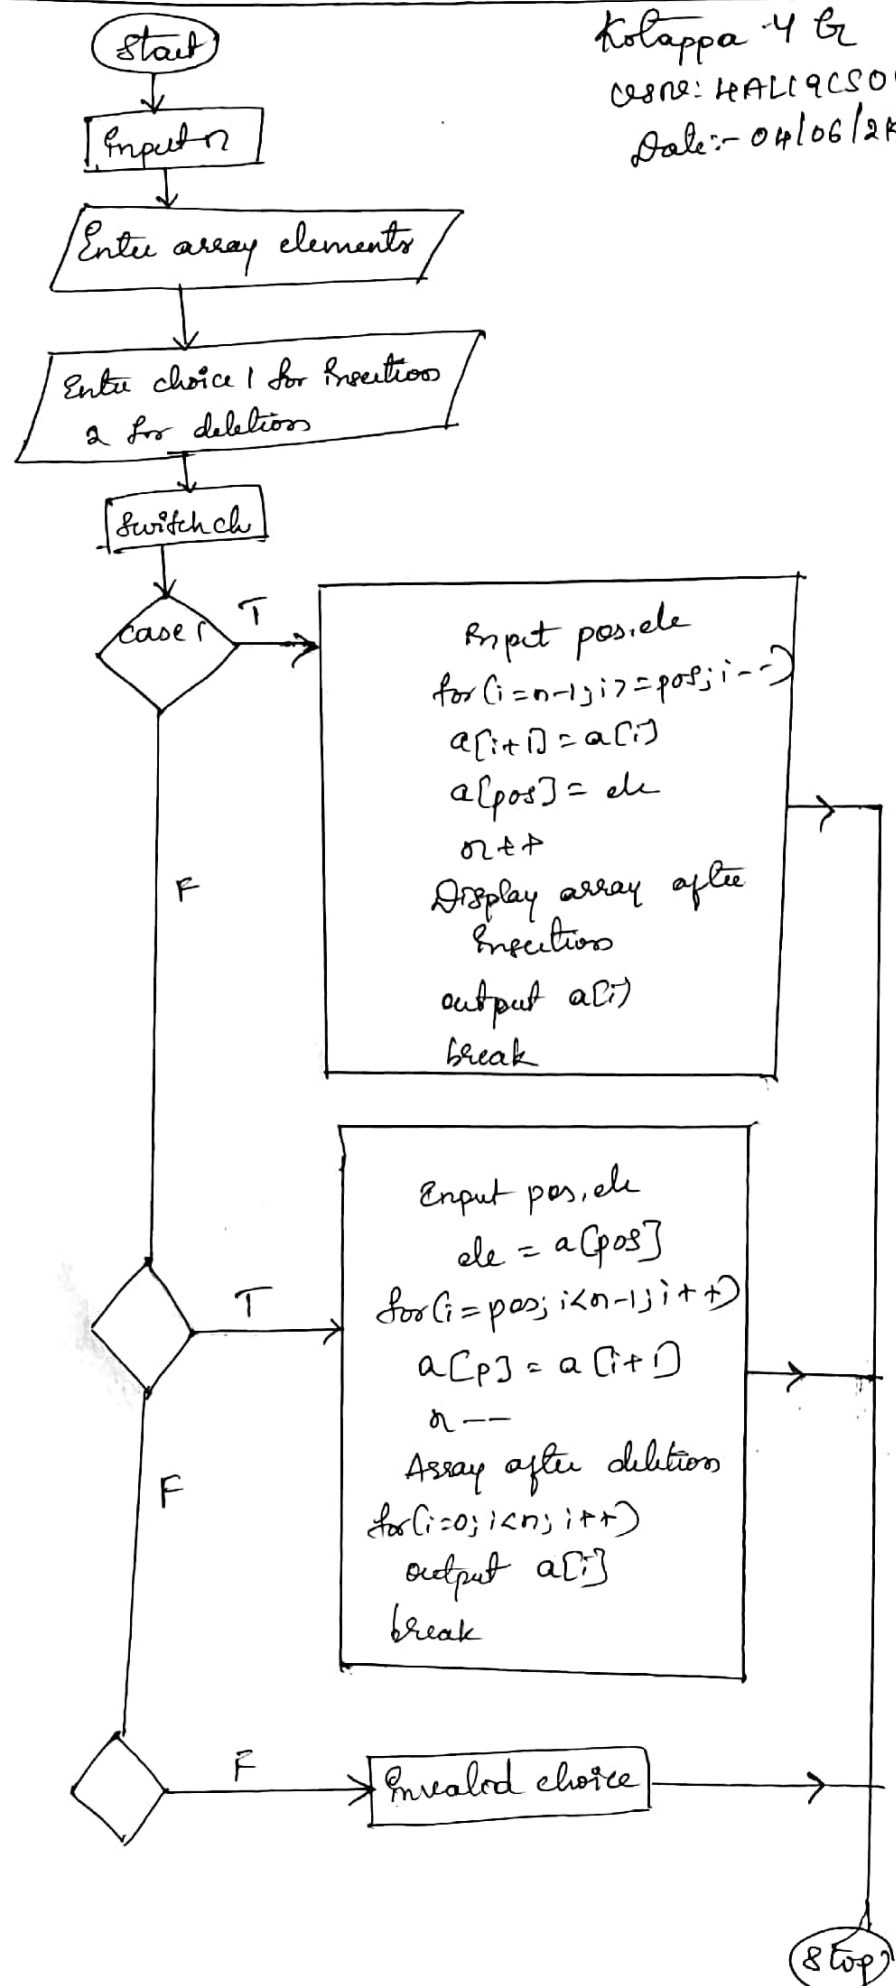 Start
Kotappa
USN: 4AL19CS0
Date:- 04/06/2
Input n
Enter array elements
Enter choice 1 for Insertion
2 for deletion
Switch ch
case 1
T
Input pos, ele
for(i=n-1; i>=pos; i--)
a[i+1]=a[i]
a[pos] = ele
n++
Display array after
Insertion
output a[i]
break
F
Input pos, ele
ele = a[pos]
for(i=pos; i<n-1; i++)
a[p] = a[i+1]
n--
Array after deletion
for(i=0; i<n; i++)
output a[i]
break
T
F
F
Invalid choice
Stop